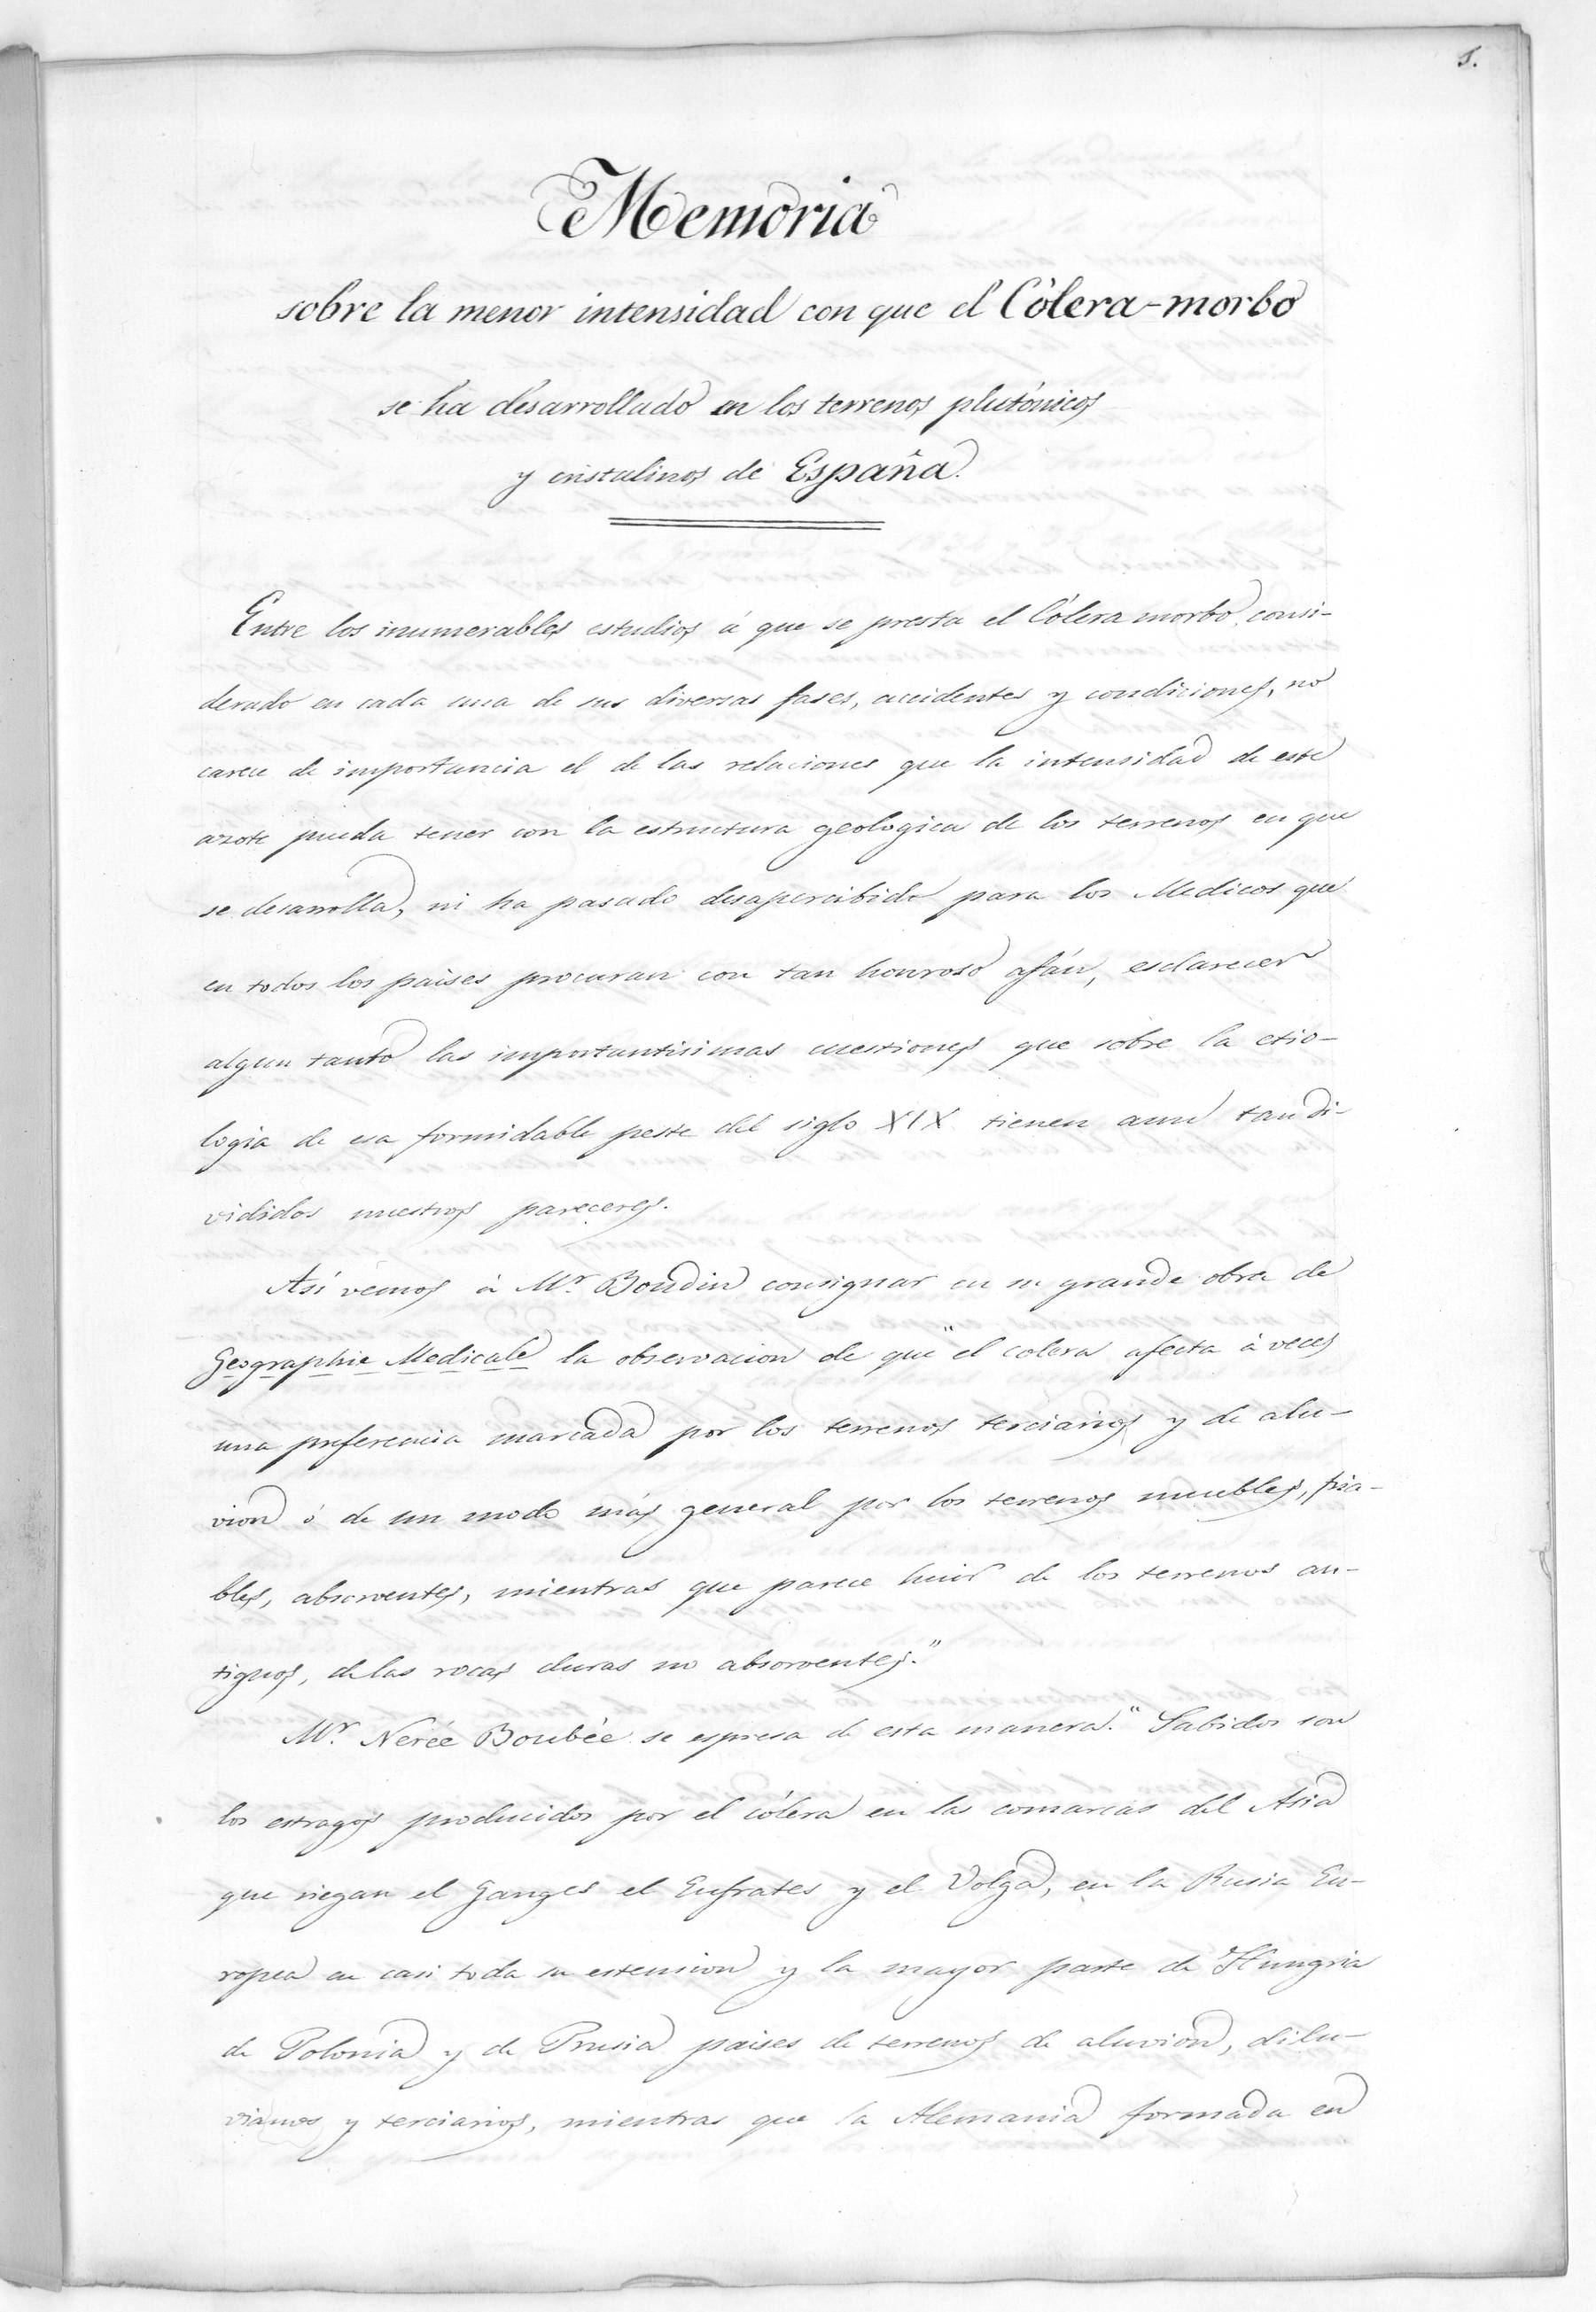 1.
Memoria
sobre la menor intensidad con que el Cólera-morbo
se ha desarrollado en los terrenos plutónicos
y cristalinos de España.
Entre los inumerables estudios á que se presta el Cólera morbo, consi-
derado en cada una de sus diversas fases, accidentes y condiciones, no
carece de importancia el de las relaciones que la intensidad de este
azote pueda tener con la estructura geologica de los terrenos en que
se desarrolla, ni ha pasado desapercibido para los Medicos que
en todos los paises procuran con tan honroso afán, esclarecer
algun tanto las importantisimas cuestiones que sobre la etio-
logia de esa formidable peste del siglo XIX tienen aun tan di-
vididos nuestros pareceres.
Así vemos á Mr. Boudin consignar en su grande obra de
Geographie Medicale la observacion de que "el colera afecta á veces
una preferencia marcada por los terrenos terciarios y de alu-
vion ó de un modo más general por los terrenos muebles, fria-
bles, absorventes, mientras que parece huir de los terrenos an-
tiguos, de las rocas duras no absorventes."
Mr. Nerée Boubée se espresa de esta manera. "Sabidos son
los estragos producidos por el cólera en las comarcas del Asia
que riegan el Ganges el Eufrates y el Volga, en la Rusia Eu-
ropea en casi toda su estension y la mayor parte de Hungria
de Polonia y de Prusia paises de terrenos de aluvion, dilu-
vianos y terciarios, mientras que la Alemania formada en